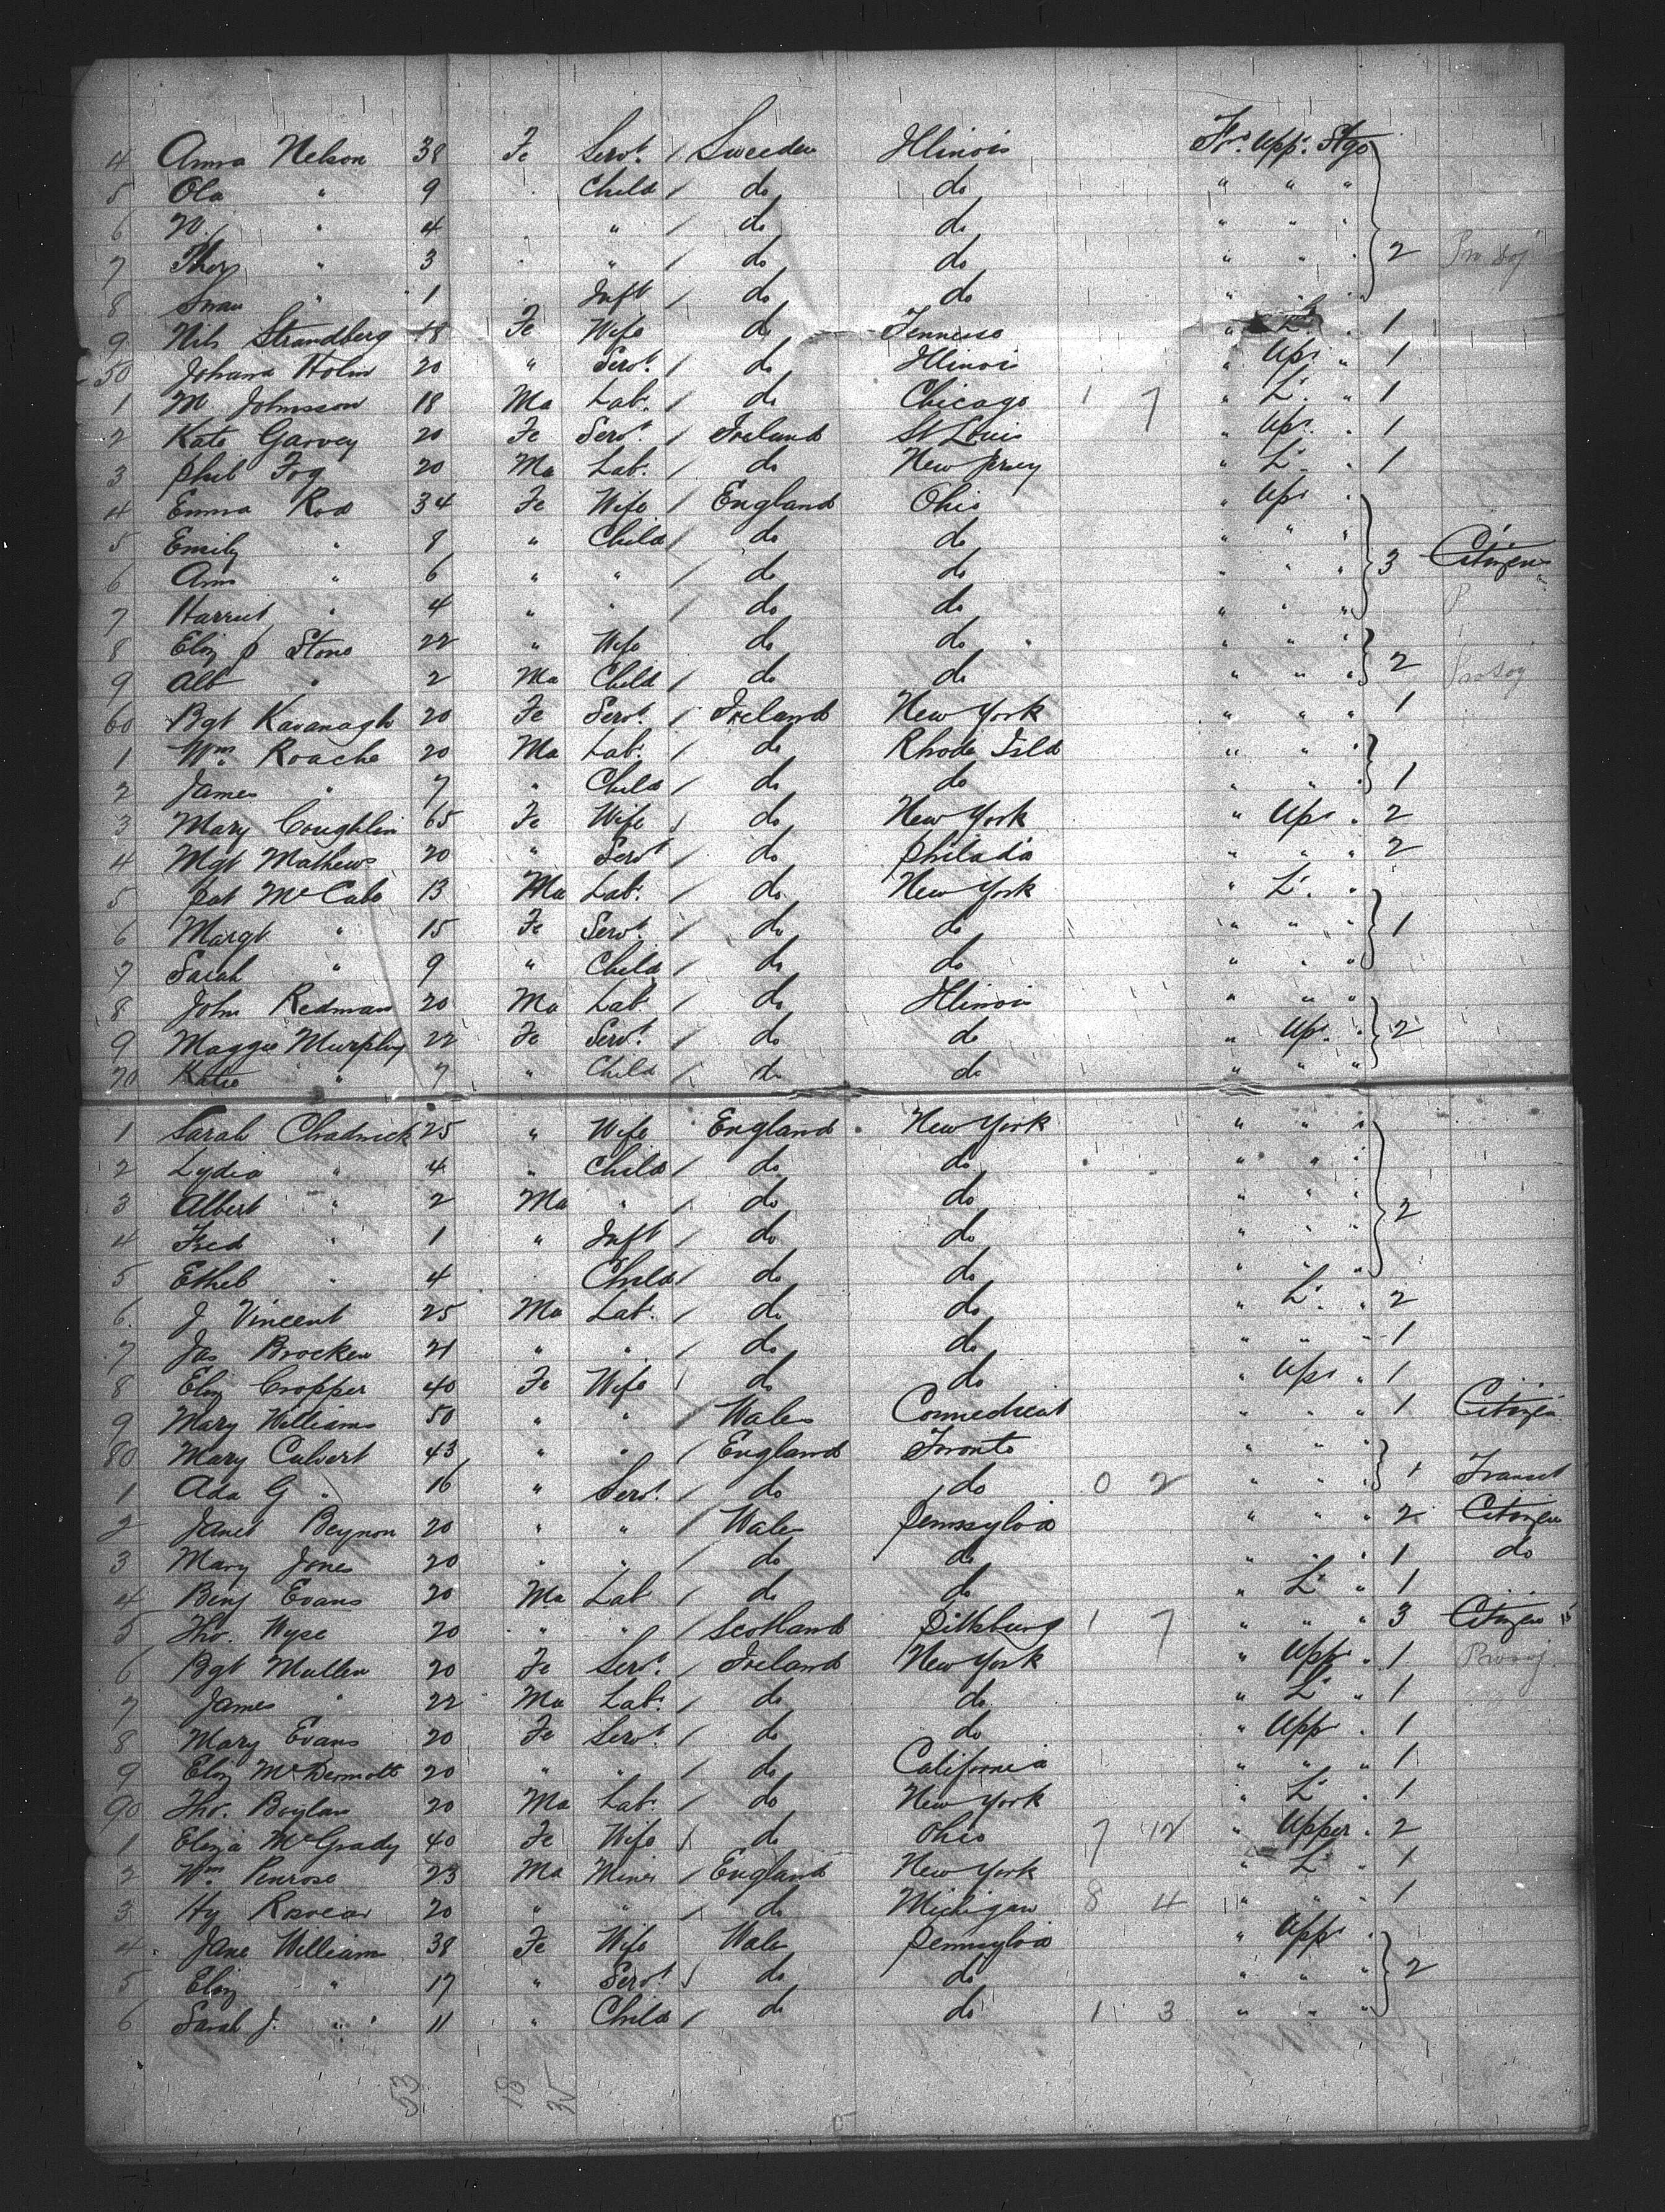 4 Anna Nelson 38 Fe Servt / Sweeden Illinois Fr. Upp. Stge
5 Ola " 9 Child / do do " " "
6 " 4 " / do do " " "
7 Thos " 3 " / do do " " " 2
8 Swan " 1 Inft / do do " "
9 Nils Strandberg 18 Fe Wife do Tennisse " L. " 1
50 Johana Holm 20 " Servt / do Illinois " Upr " 1
1 M Johnsson 18 Ma Labr / do Chicago 1 7 " L. " 1
2 Kate Garvey 20 Fe Servt / Ireland St Louis " Upr. " 1
3 Phil Fog 20 Ma Labr / do New Jersey " L. " 1
4 Emma Rod 34 Fe Wife / England Ohio " Upr "
5 Emily " 8 " Child / do do " " "
6 Ann " 6 " " / do do " " " 3 Citizen
7 Harriet " 4 " " / do do " " " P
8 Eliz J Stone 22 " Wife do do " " "
9 Alb " 2 Ma Child / do do " " " 2
60 Bgt Kavanagh 20 Fe Servt / Ireland New York " " " 1
1 Wm Roache 20 Ma Labr / do Rhode Isld " " "
2 James " 7 " Child / do do " " " 1
3 Mary Coughlin 65 Fe Wife / do New York " Upr " 2
4 Mgt Mathews 20 " Servt / do Philada " " " 2
5 Pat McCabe 13 Ma Labr / do New York " L. "
6 Margt " 15 Fe Servt / do do " " " 1
7 Sarah " 9 " Child / do do " " "
8 John Redman 20 Ma Labr / do Illinois " " "
9 Maggie Murphy 22 Fe Servt / do do " Upr. " 2
70 Katie " 7 " Child / do do " " "
1 Sarah Chadwick 25 " Wife England New York " " "
2 Lydia " 4 " Child / do do " " "
3 Albert " 2 Ma " / do do " " "
4 Fred " 1 " Inft / do do " " " 2
5 Ethel " 4 Child / do do " " "
6 J Vincent 25 Ma Labr / do do " L. " 2
7 Jas Brocken 21 " " / do do " " " 1
8 Eliz Cropper 40 Fe Wife / do do " Upr " 1
9 Mary Williams 50 " " / Wales Connecticut " " " 1 Citizen
80 Mary Calvert 43 " " / England Toronto " " "
1 Ada G " 16 " Servt / do do 0 2 " " " 1 Transit
2 Janet Beynon 20 " " / Wales Pennsylva " " " 2 Citizen
3 Mary Jones 20 " " / do do " " " 1 do
4 Benj Evans 20 Ma Lab / do do " L " 1
5 Tho. Wyse 20 " " / Scotland Pittsburg 1 7 " " " 3 Citizen
6 Bgt Mullen 20 Fe Servt / Ireland New York " Uppr " 1
7 James " 22 Ma Labr / do do " L " 1
8 Mary Evans 20 Fe Servt / do do " Uppr " 1
9 Eliz McDermott 20 " " / do California " " " 1
90 Tho. Boylan 20 Ma Labr / do New York " L " 1
1 Eliza McGrady 40 Fe Wife / do Ohio 7 12 " Upper " 2
2 Wm Penrose 23 Ma Miner / England New York " L " 1
3 Hy Rosvear 20 " " / do Michigan 8 4 " " " 1
4 Jane William 38 Fe Wife Wales Pennsylva " Uppr "
5 Eliz " 17 " Servt / do do " " " 2
6 Sarah J. " 11 " Child / do do 1 3 " " "
53 18 35